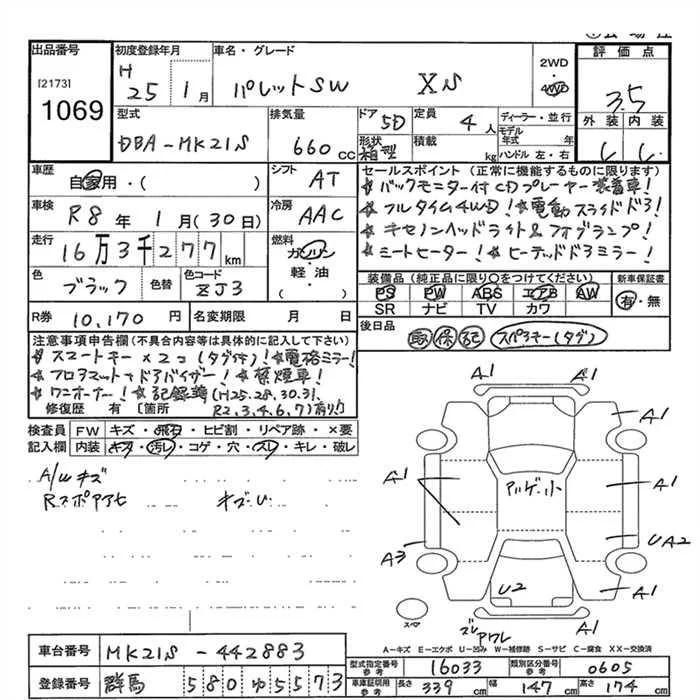 出品番号 初度登録年月 車名・グレード 2WD 評価点
[2173] H 25 1月 パレットSW XS 4WD 3.5
1069 型式 排気量 ドア 定員 ディーラー・並行 外装 内装
DBA-MK21S 660cc 5D 4人 モデル年式 年
形状 箱型 積載 kg ハンドル 左・右 C C
車歴 自家用・( ) シフト AT セールスポイント(正常に機能するものに限ります)
★バックモニター付CDプレーヤー装着車!
車検 R8年1月(30日) 冷房 AAC ★フルタイム4WD!★電動スライドドア!
★キセノンヘッドライト&フォグランプ!
走行 16万3千277km 燃料 ガソリン・軽・油・( ) ★シートヒーター!★ヒーテッドドアミラー!
色 ブラック 色替 色コード ZJ3 装備品(純正品に限り○をつけてください) 新車保証書
PS PW ABS エアB AW 有・無
SR ナビ TV カワ
R券 10,170円 名変期限 月 日 後日品 取 保 記 スペアキー(タグ)
注意事項申告欄(不具合内容等は具体的に記入して下さい)
★スマートキー×2コ(タグ付)!★電格ミラー!
★フロアマット+ドアバイザー!★禁煙車!
★ワンオーナー!★記録簿(H25.28.30.31.
修復歴 有 [箇所 R2,3,4,6,7)有り!]
検査員 FW キズ・飛石・ヒビ割・リペア跡・×要
記入欄 内装 キズ・汚レ・コゲ・穴・スレ・キレ・破レ
A/Wキズ
RスポアアCキズ・U
A1 A1
A1
A1 アルゲート小 A1
A3 UA2
U2
A1 A1
スペア スレ アワレ
A-キズ E-エクボ U-凹み W-補修跡 S-サビ C-腐食 XX-交換済
車台番号 MK21S-442883
型式指定番号 参考 16033 類別区分番号 参考 0605
登録番号 群馬 580ゆ5573 車庫証明用 参考 長さ 339cm 幅 147cm 高さ 174cm